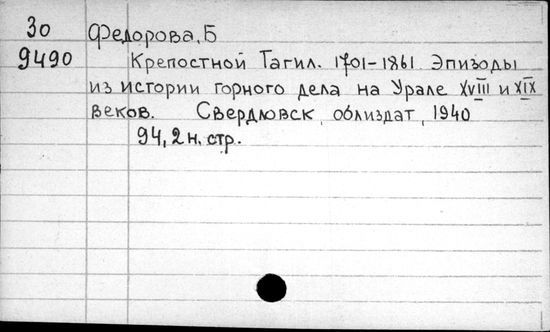 30 Федорова, Б
9490 Крепостной Тагил. 1701-1861. Эпизоды
из истории горного дела на Урале XVIII и XIX
веков. Свердловск, облиздат, 1940
94, 2 н. стр.